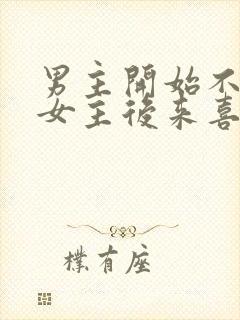 男主開始不
女主後来喜
樸有座